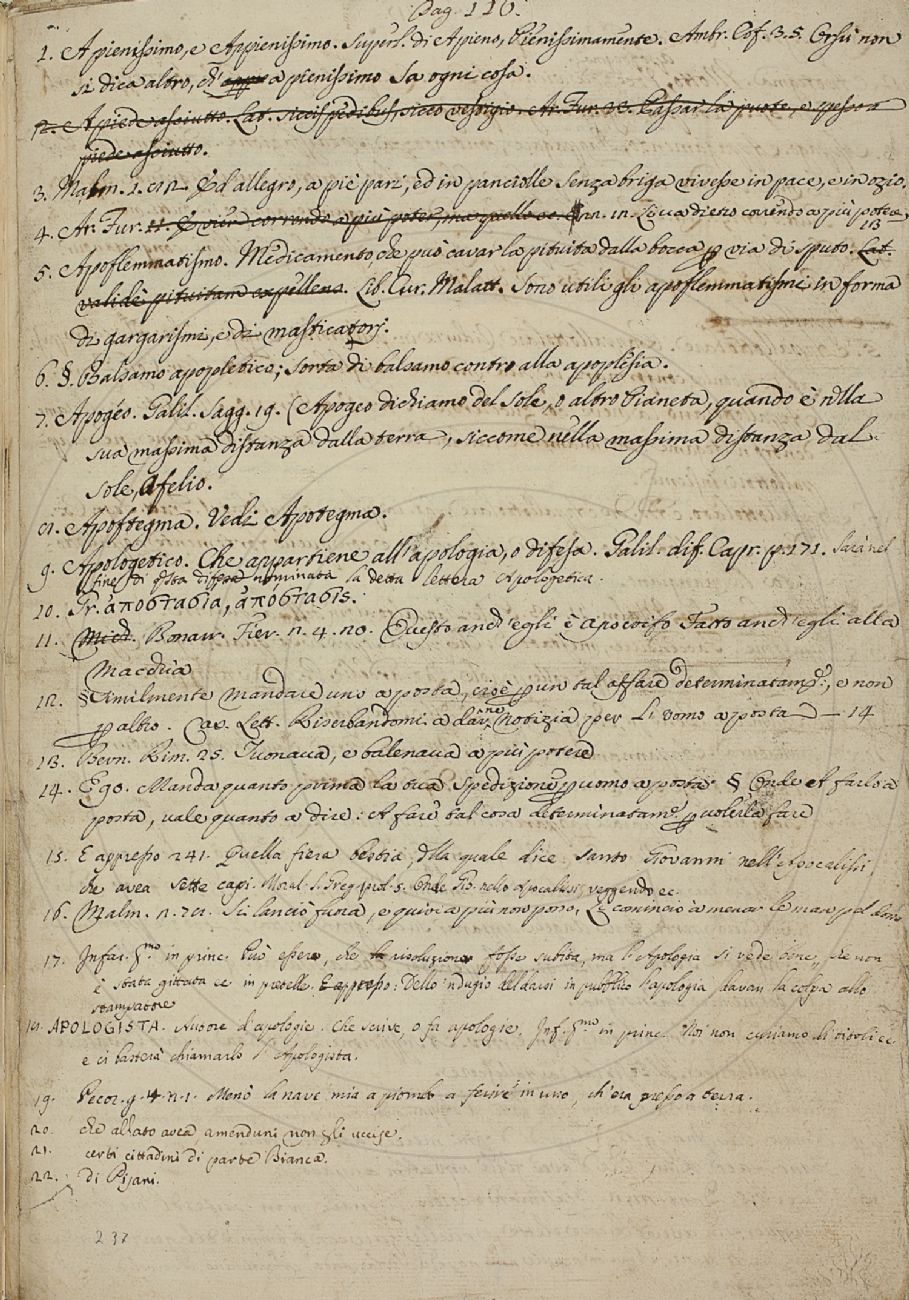 Pag. 110.
1. Apienissimo, e Appienissimo. Superl. di Apieno, Pienissimamente. Ambr. Cof. 3. 5. Orsù non
si dica altro, ch' a pienissimo sa ogni cosa.
12. A piede asciutto. Lat. siccis pedibus, sicco vestigio. Ar. Fur. Passar la
piede asciutto.
3. Malm. 1. 82 E d'allegro, a piè pari, ed in panciolle Senza briga vivesse in pace, e in ozio.
4. Ar. Fur. E vien correndo a più poter, ma quello Licca dietro correndo a più potere
113
5. Apoflemmatismo. Medicamento che può cavar la pituita dalla bocca p via di sputo. Lat.
validè pituitam expellens. Lib. Cur. Malatt. Sono utili gli apoflemmatismi in forma
di gargarismi, e di masticatorj.
6. §. Balsamo apopletico; Sorta di balsamo contro alla apoplesia.
7. Apogéo. Galil. Sagg. 19. (Apogeo dichiamo del Sole, o altro Pianeta, quando è nlla
sua massima distanza dalla terra, siccome nella massima distanza dal
sole, Afelio.
8. Apoftegma. Vedi Apotegma.
9. Apologetico. Che appartiene all'apologia, o difesa. Galil. dif. Capr. p. 171. Sarà nel
fine di qsta difesa nominata la detta lettera Apologetica.
10. Gr. ἀποστασία, ἀπόστασις.
11. Med. Bonarr. Fier. n. 4. 20. Questo anch'egli è apocrifo Fatto anch'egli alla
Macchia
12. § Similmente mandare uno a posta, cioè p un tal affare determinatamte, e non
p altro. Car. Lett. Diserbandomi a darvene notizia per L'uomo a posta — 14
13. Bern. Rim. 25. Tuonava, e balenava a più potere
14. E 90. Manda quanto prima la tua Spedizione p uomo a posta. § Onde A farlo a
posta, vale quanto a dire: A fare tal cosa determinatamte p volerla fare
15. E appresso 241. Quella fiera bestia, dlla quale dice santo Giovanni nell'Apocalissi,
che avea sette capi. Moral. S. Greg. prol. 5. Onde Gio. nello Apocalissi veggendo ec.
16. Malm. n. 78. Si lanciò fuora, e quivi a più non posso, Le cominciò a menar le man pel dosso
17. Infar. 2mo in princ. Può essere, che la risoluzione fosse subita, ma l'Apologia si vede bene, che non
è stata gittata ec in pretelle. E appresso: Dello 'ndugio del darsi in pubblico l'apologia davan la colpa allo
stampatore
18. APOLOGISTA. Autore d'apologie. Che scrive, o fa apologie. Inf. 2mo in princ. Noi non curiamo di titoli ec.
e ci basterà chiamarlo l'Apologista.
19. Pecor. g. 4. n. 1. Menò la nave mia a piombo a ferire in uno, ch'era presso a terra.
20. che allato avea, amenduni non gli uccise.
21. certi cittadini di parte Bianca.
22. di Pisani.
237